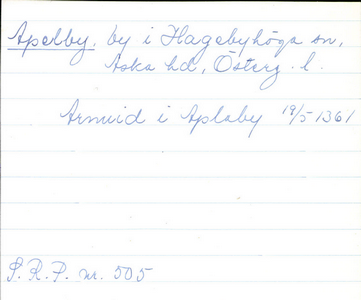 Apelby, by i Hagebyhöga sn,
Aska hd, Österg. l.
Arnvid i Aplaby 19/5 1361
S.R.P. nr. 505